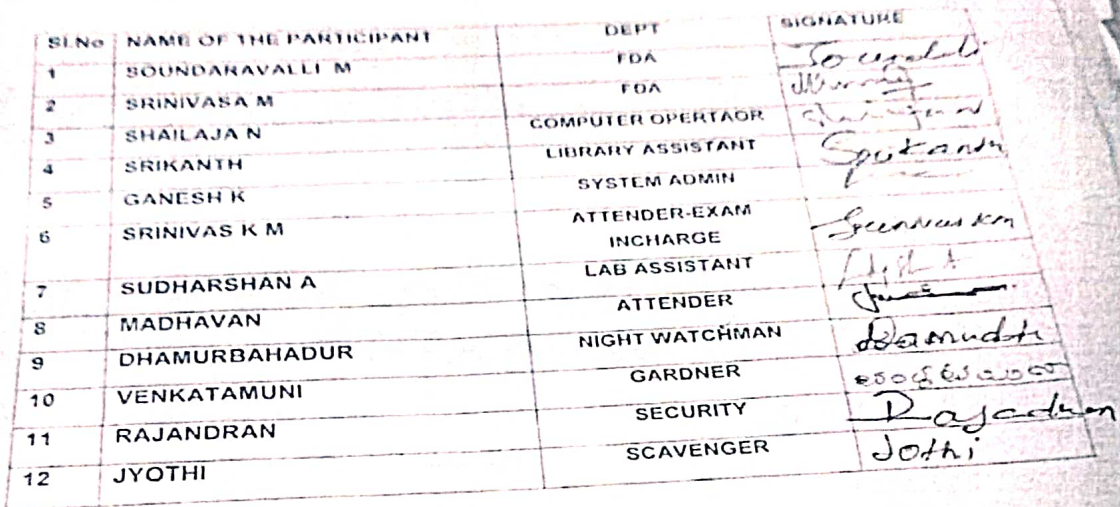 SI.No NAME OF THE PARTICIPANT DEPT SIGNATURE
1 SOUNDARAVALLI M FDA
2 SRINIVASA M FDA
3 SHAILAJA N COMPUTER OPERTAOR
4 SRIKANTH LIBRARY ASSISTANT Srikanth
5 GANESH K SYSTEM ADMIN
6 SRINIVAS K M ATTENDER-EXAM INCHARGE Sreenivas KM
7 SUDHARSHAN A LAB ASSISTANT
8 MADHAVAN ATTENDER
9 DHAMURBAHADUR NIGHT WATCHMAN
10 VENKATAMUNI GARDNER
11 RAJANDRAN SECURITY
12 JYOTHI SCAVENGER Jothi